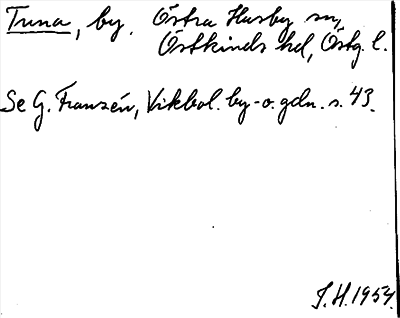 Tuna, by. Östra Husby sn,
Östkinds hd, Östg. l.
Se G. Franzén, Vikbol. by- o. gdn. s. 43.
J.H. 1954.